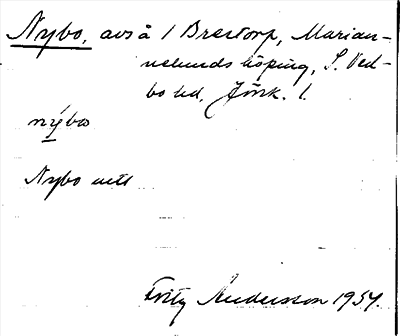 Nybo, avs å 1 Brestorp, Marian-
nelunds köping, S. Ved-
bo hd, Jönk. l.
nybo
Nybo
Fritz Andersson 1954.